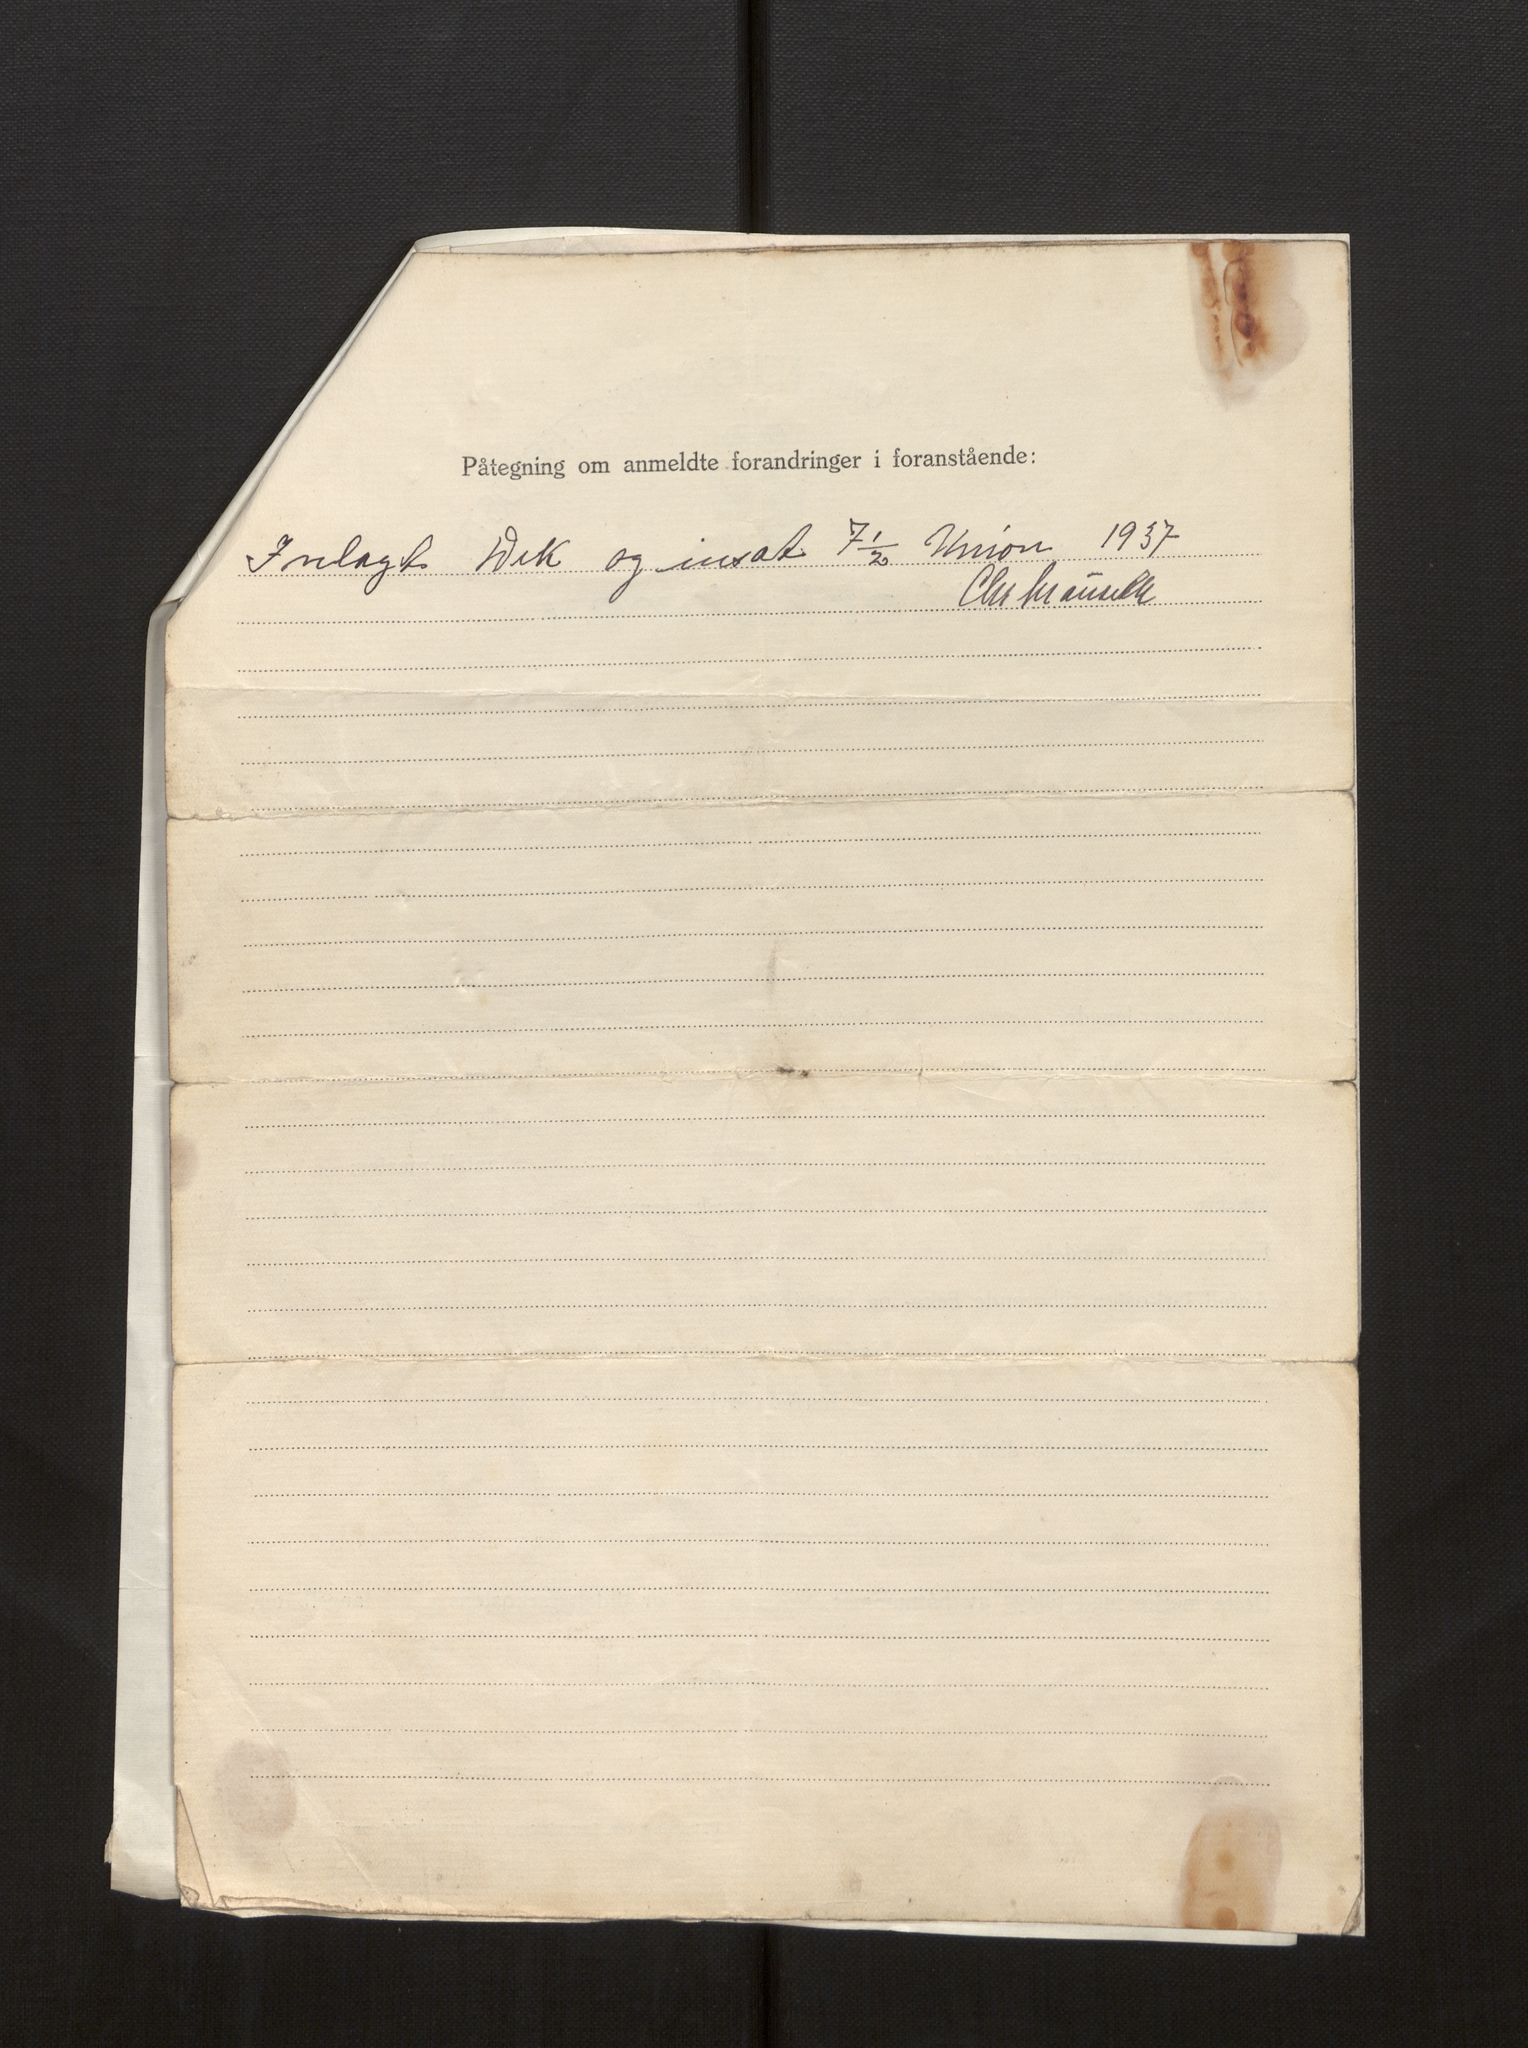 Påtegning om anmeldte forandringer i foranstående:
Inlagt Dek og insat 7½ Union 1937
Chr